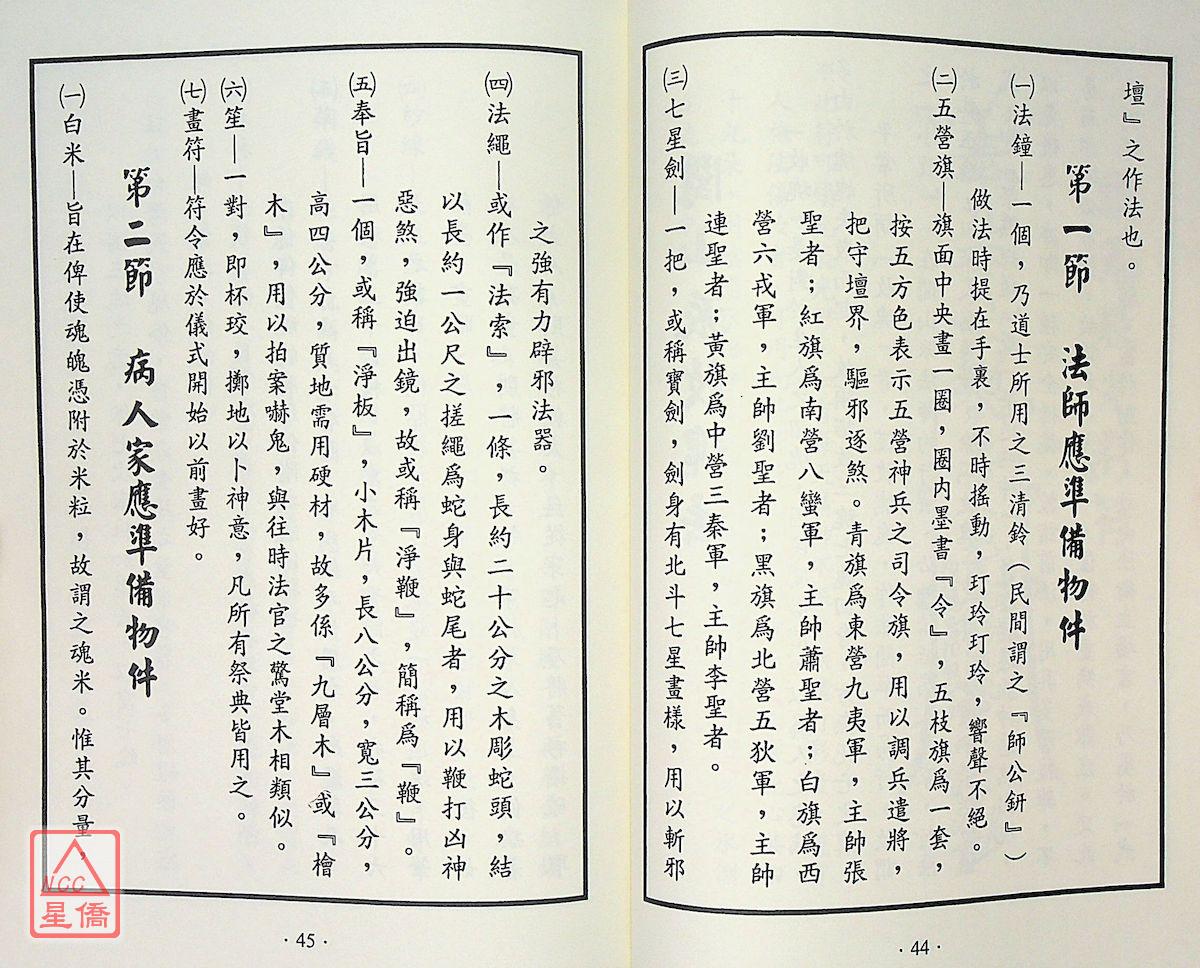 壇』之作法也。
第一節　法師應準備物件
㈠法鐘——一個，乃道士所用之三清鈴（民間謂之『師公鈃』）
做法時提在手裏，不時搖動，玎玲玎玲，響聲不絕。
㈡五營旗——旗面中央畫一圈，圈內墨書『令』，五枝旗爲一套，
按五方色表示五營神兵之司令旗，用以調兵遣將，
把守壇界，驅邪逐煞。青旗爲東營九夷軍，主帥張
聖者；紅旗爲南營八蠻軍，主帥蕭聖者；白旗爲西
營六戎軍，主帥劉聖者；黑旗爲北營五狄軍，主帥
連聖者；黃旗爲中營三秦軍，主帥李聖者。
㈢七星劍——一把，或稱寶劍，劍身有北斗七星畫樣，用以斬邪
·44·
之強有力辟邪法器。
㈣法繩——或作『法索』，一條，長約二十公分之木彫蛇頭，結
以長約一公尺之搓繩爲蛇身與蛇尾者，用以鞭打凶神
惡煞，強迫出鏡，故或稱『淨鞭』，簡稱爲『鞭』。
㈤奉旨——一個，或稱『淨板』，小木片，長八公分，寬三公分，
高四公分，質地需用硬材，故多係『九層木』或『檜
木』，用以拍案嚇鬼，與往時法官之驚堂木相類似。
㈥筀——一對，即杯珓，擲地以卜神意，凡所有祭典皆用之。
㈦畫符——符令應於儀式開始以前畫好。
第二節　病人家應準備物件
㈠白米——旨在俾使魂魄憑附於米粒，故謂之魂米。惟其分量，
·45·
NCC
星僑